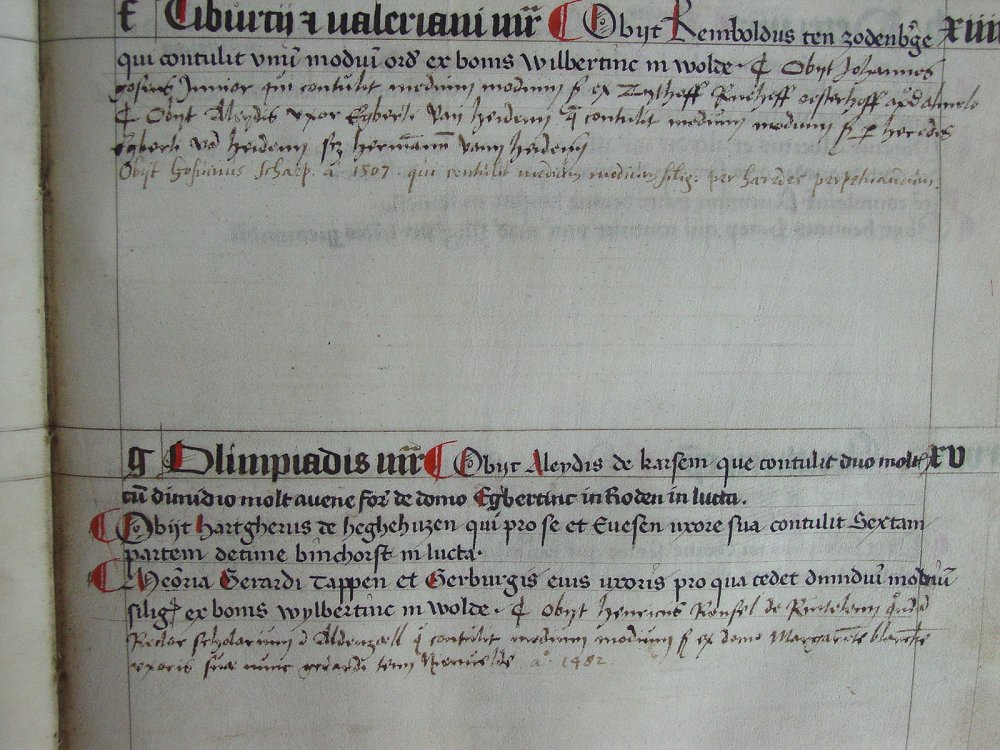 f Tiburtij et valeriani mr̄ Obijt Remboldus ten zodenbg̃e xiiii
qui contulit vnū modiū ord̃ ex bonis wilbertinc in wolde. Obijt Johannes
gosins Junior qui contulit medium modium ex oesterhoff almelo
Obijt Aleydis vxor Egberti van heidenn q̃ contulit medium modium heredes
Egberti vā heidenn hermannū vann heidenn
Obijt Gosuinus Schaep. a 1507 qui contulit medium modium silig: per haredes perpetuandum.
g Olimpiadis mr̄ Obijt Aleydis de karsem que contulit duo molt xv
cū dimidio molt avene for̃ de domo Egbertinc in Roden in lucta.
Obijt hartgherus de heghehuzen qui pro se et Euesen uxore sua contulit Sextam
partem decime binchorst in lucta.
Meōria Gerardi tappen et Gerburgis eius uxoris pro qua cedet dimidiū modiuū
silig̃ ex bonis wylbertinc in wolde. Obijt henricus de
Rector scholarium Aldenzaell q̃ contulit medium modium ex domo Margarete
vxoris sue nunc gerardi tenn a° 1482